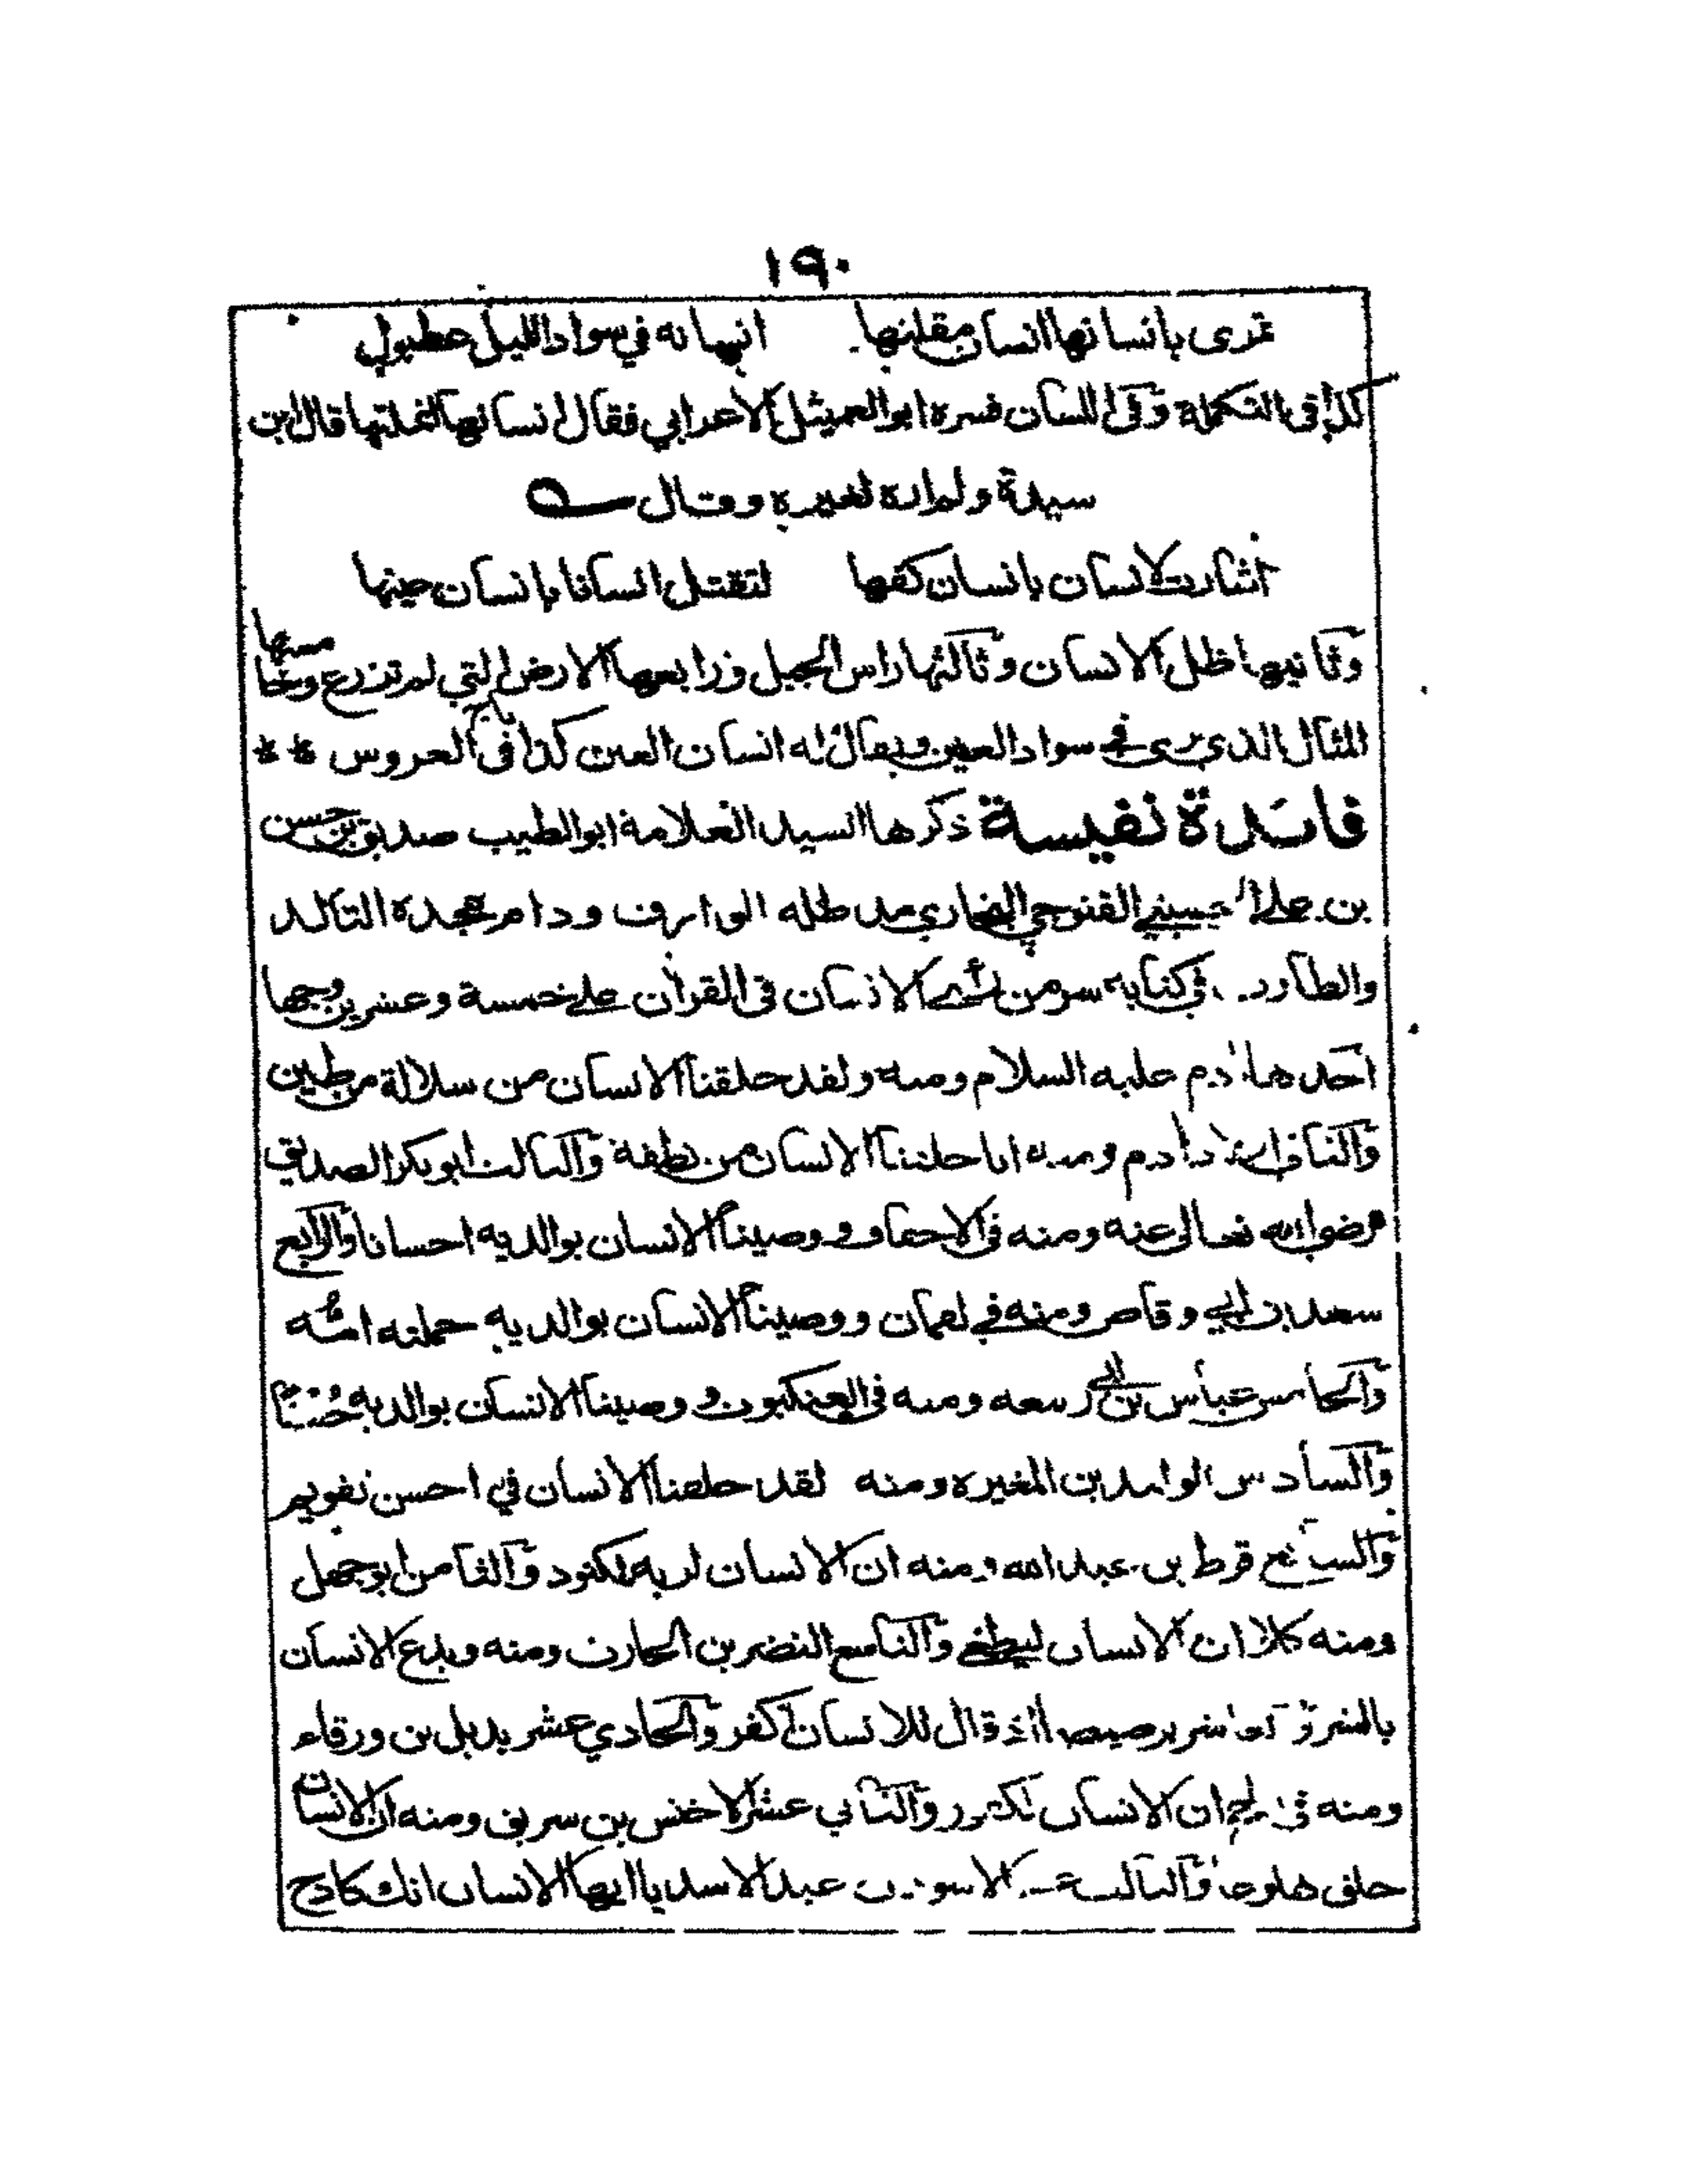 ١٩٠
تمرى بانسانها انسان مقلتها انسانه في سواد الليل عطبول
كذا فى التكملة وفى اللسان فسره ابو العميثل الاعرابي فقال انسانها انملتها قال ابن
سيدة ولم اره لغيره وقال
اشارت لانسان بانسان كفها لتقتل انسانا بانسان عينها
وثانيها ظل الانسان وثالثها راس الجبل ورابعها الارض التي لم تزرع وخامسها
المثال الذي يرى في سواد العين ويقال له انسان العين كذا فى تاج العروس **
فائدة نفيسة ذكرها السيد العلامة ابو الطيب صديق بن حسن
بن علي الحسيني القنوجي البخاري مد ظله الوارف ودام مجده التالد
والطارد فى كتابه سر من الانسان فى القرأن على خمسة وعشرين وجها
احدها ادم عليه السلام ومنه ولقد خلقنا الانسان من سلالة من طين
والثانى اولاد ادم ومنه انا خلقنا الانسان من نطفة والثالث ابو بكر الصديق
رضي الله تعالى عنه ومنه فى الاحقاف ووصينا الانسان بوالديه احسانا والرابع
سعد بن ابي وقاص ومنه في لقمان ووصينا الانسان بوالديه حملته امه
والخامس عباس بن ابي ربيعه ومنه فى العنكبوت ووصينا الانسان بوالديه حُسْنًا
والسادس الوليد بن المغيره ومنه لقد خلقنا الانسان في احسن تقويم
والسابع قرط بن عبد الله ومنه ان الانسان لربه لكنود والثامن ابو جهل
ومنه كلا ان الانسان ليطغى والتاسع النضر بن الحارث ومنه ويدع الانسان
بالشر والعاشر برصيصا اذ قال للانسان اكفر والحادي عشر بديل بن ورقاء
ومنه فى الحج ان الانسان لكفور والثاني عشر الاخنس بن سريق ومنه ان الانسان
خلق هلوعا والثالث عشر الاسود بن عبد الاسد يا ايها الانسان انك كادح